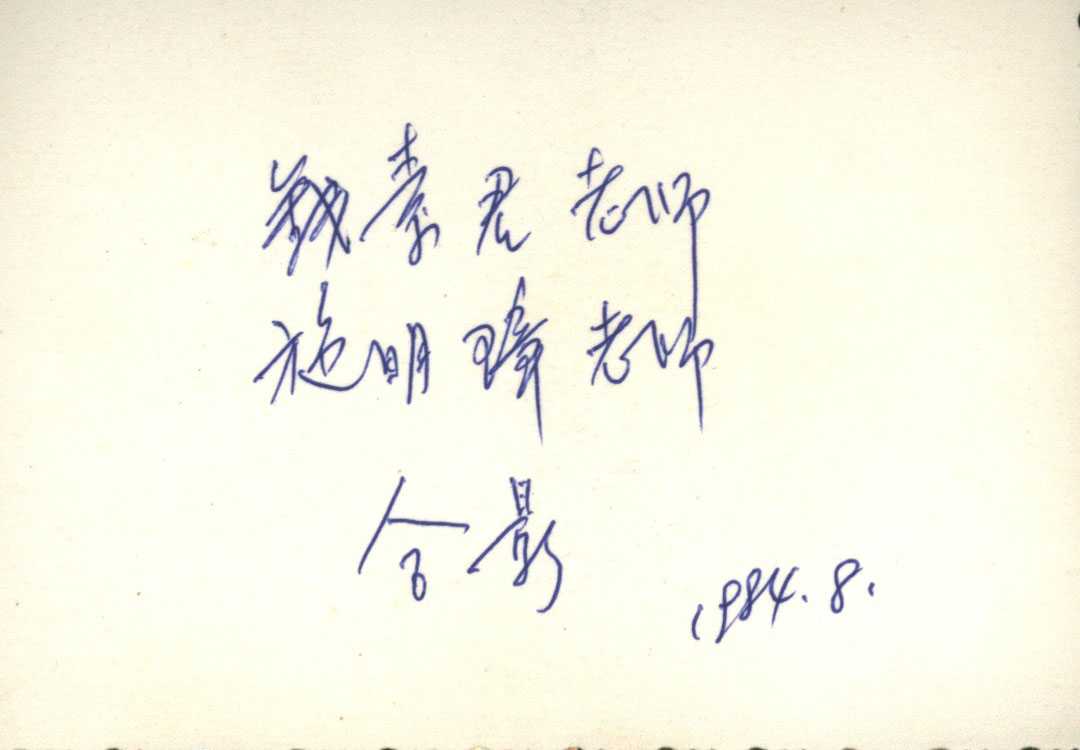 素君老师
施明璋老师
合影
1984.8.